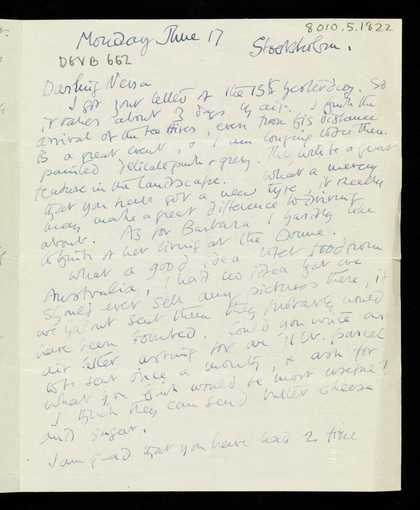 8010.5.1822
Monday June 17
Stockholm.
DEVB 662
Darling Nessa
I got your letter of the 15th yesterday. So
it takes about 2 days by air. I think the
arrival of the , even from this distance
is a great event, & I am longing to see them.
painted delicate pink & grey. They will be a great
feature in the landscape. What a mercy
that you have got a new tyre, it really
may make a great difference to driving
about. As for Barbara I hardly like
to think of her living at the
What a good idea food from
Australia, I had no idea that we
should ever sell any pictures there, if
we had not sent them they probably would
have been bombed. Could you write an
air letter asking for an 11 lb. parcel
to be sent once a month, & ask for
what you think would be most useful?
I think they can send butter cheese
and sugar.
I am glad that you have had 2 fine